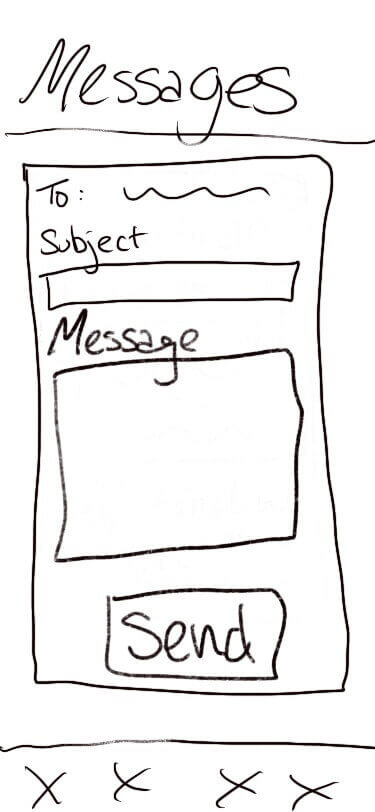 Messages
To:
Subject
Message
Send
X X X X